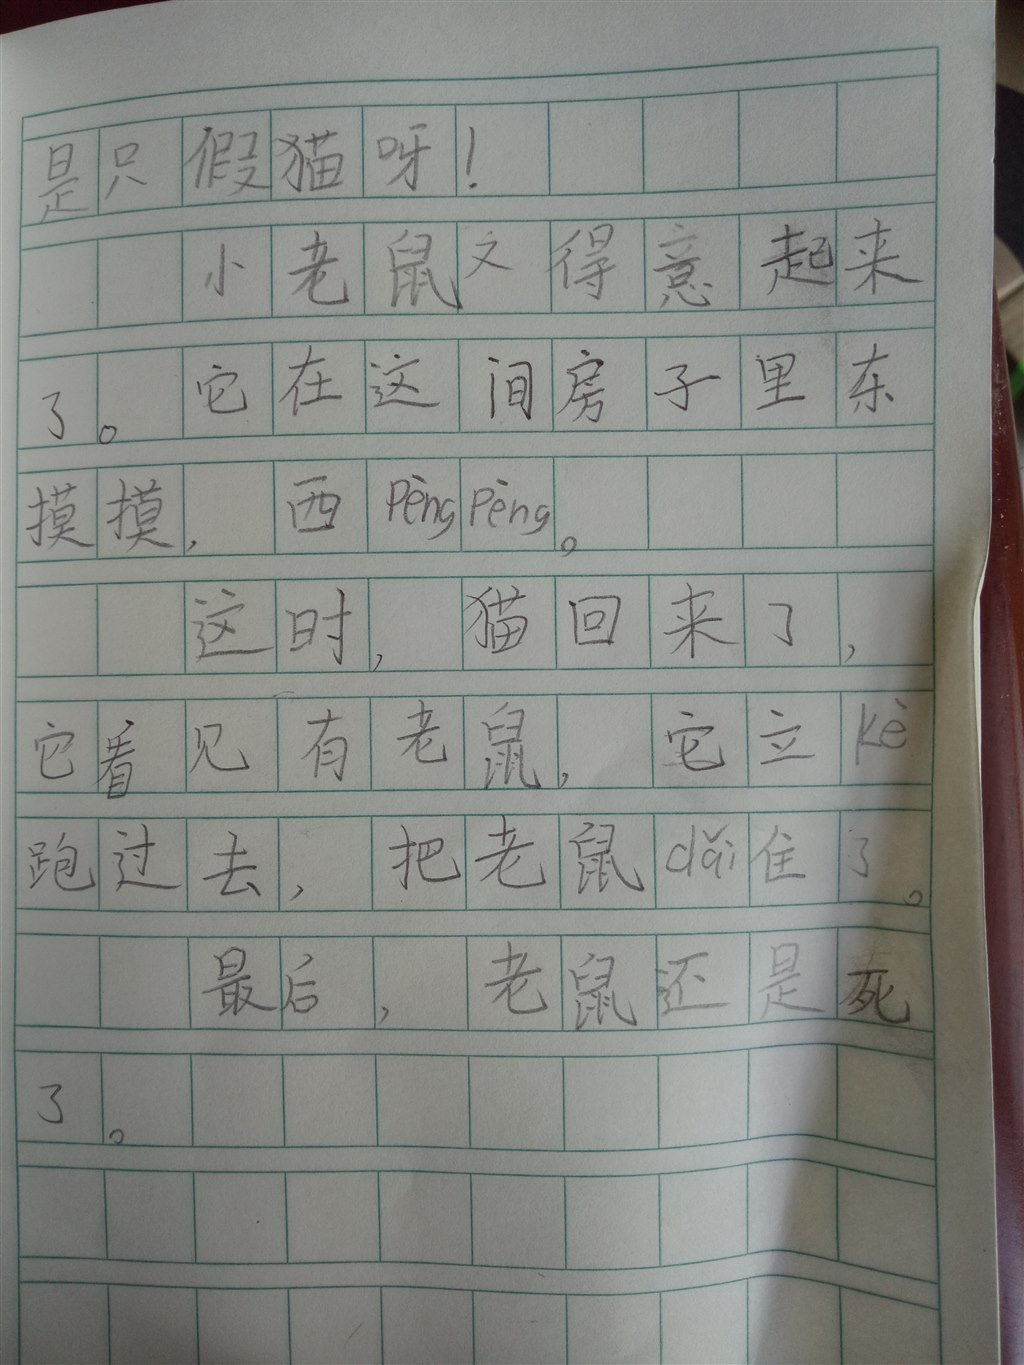 是只假猫呀！
小老鼠又得意起来
了。它在这间房子里东
摸摸，西pèngpèng。
这时，猫回来了，
它看见有老鼠，它立kè
跑过去，把老鼠dǎi住了。
最后，老鼠还是死
了。